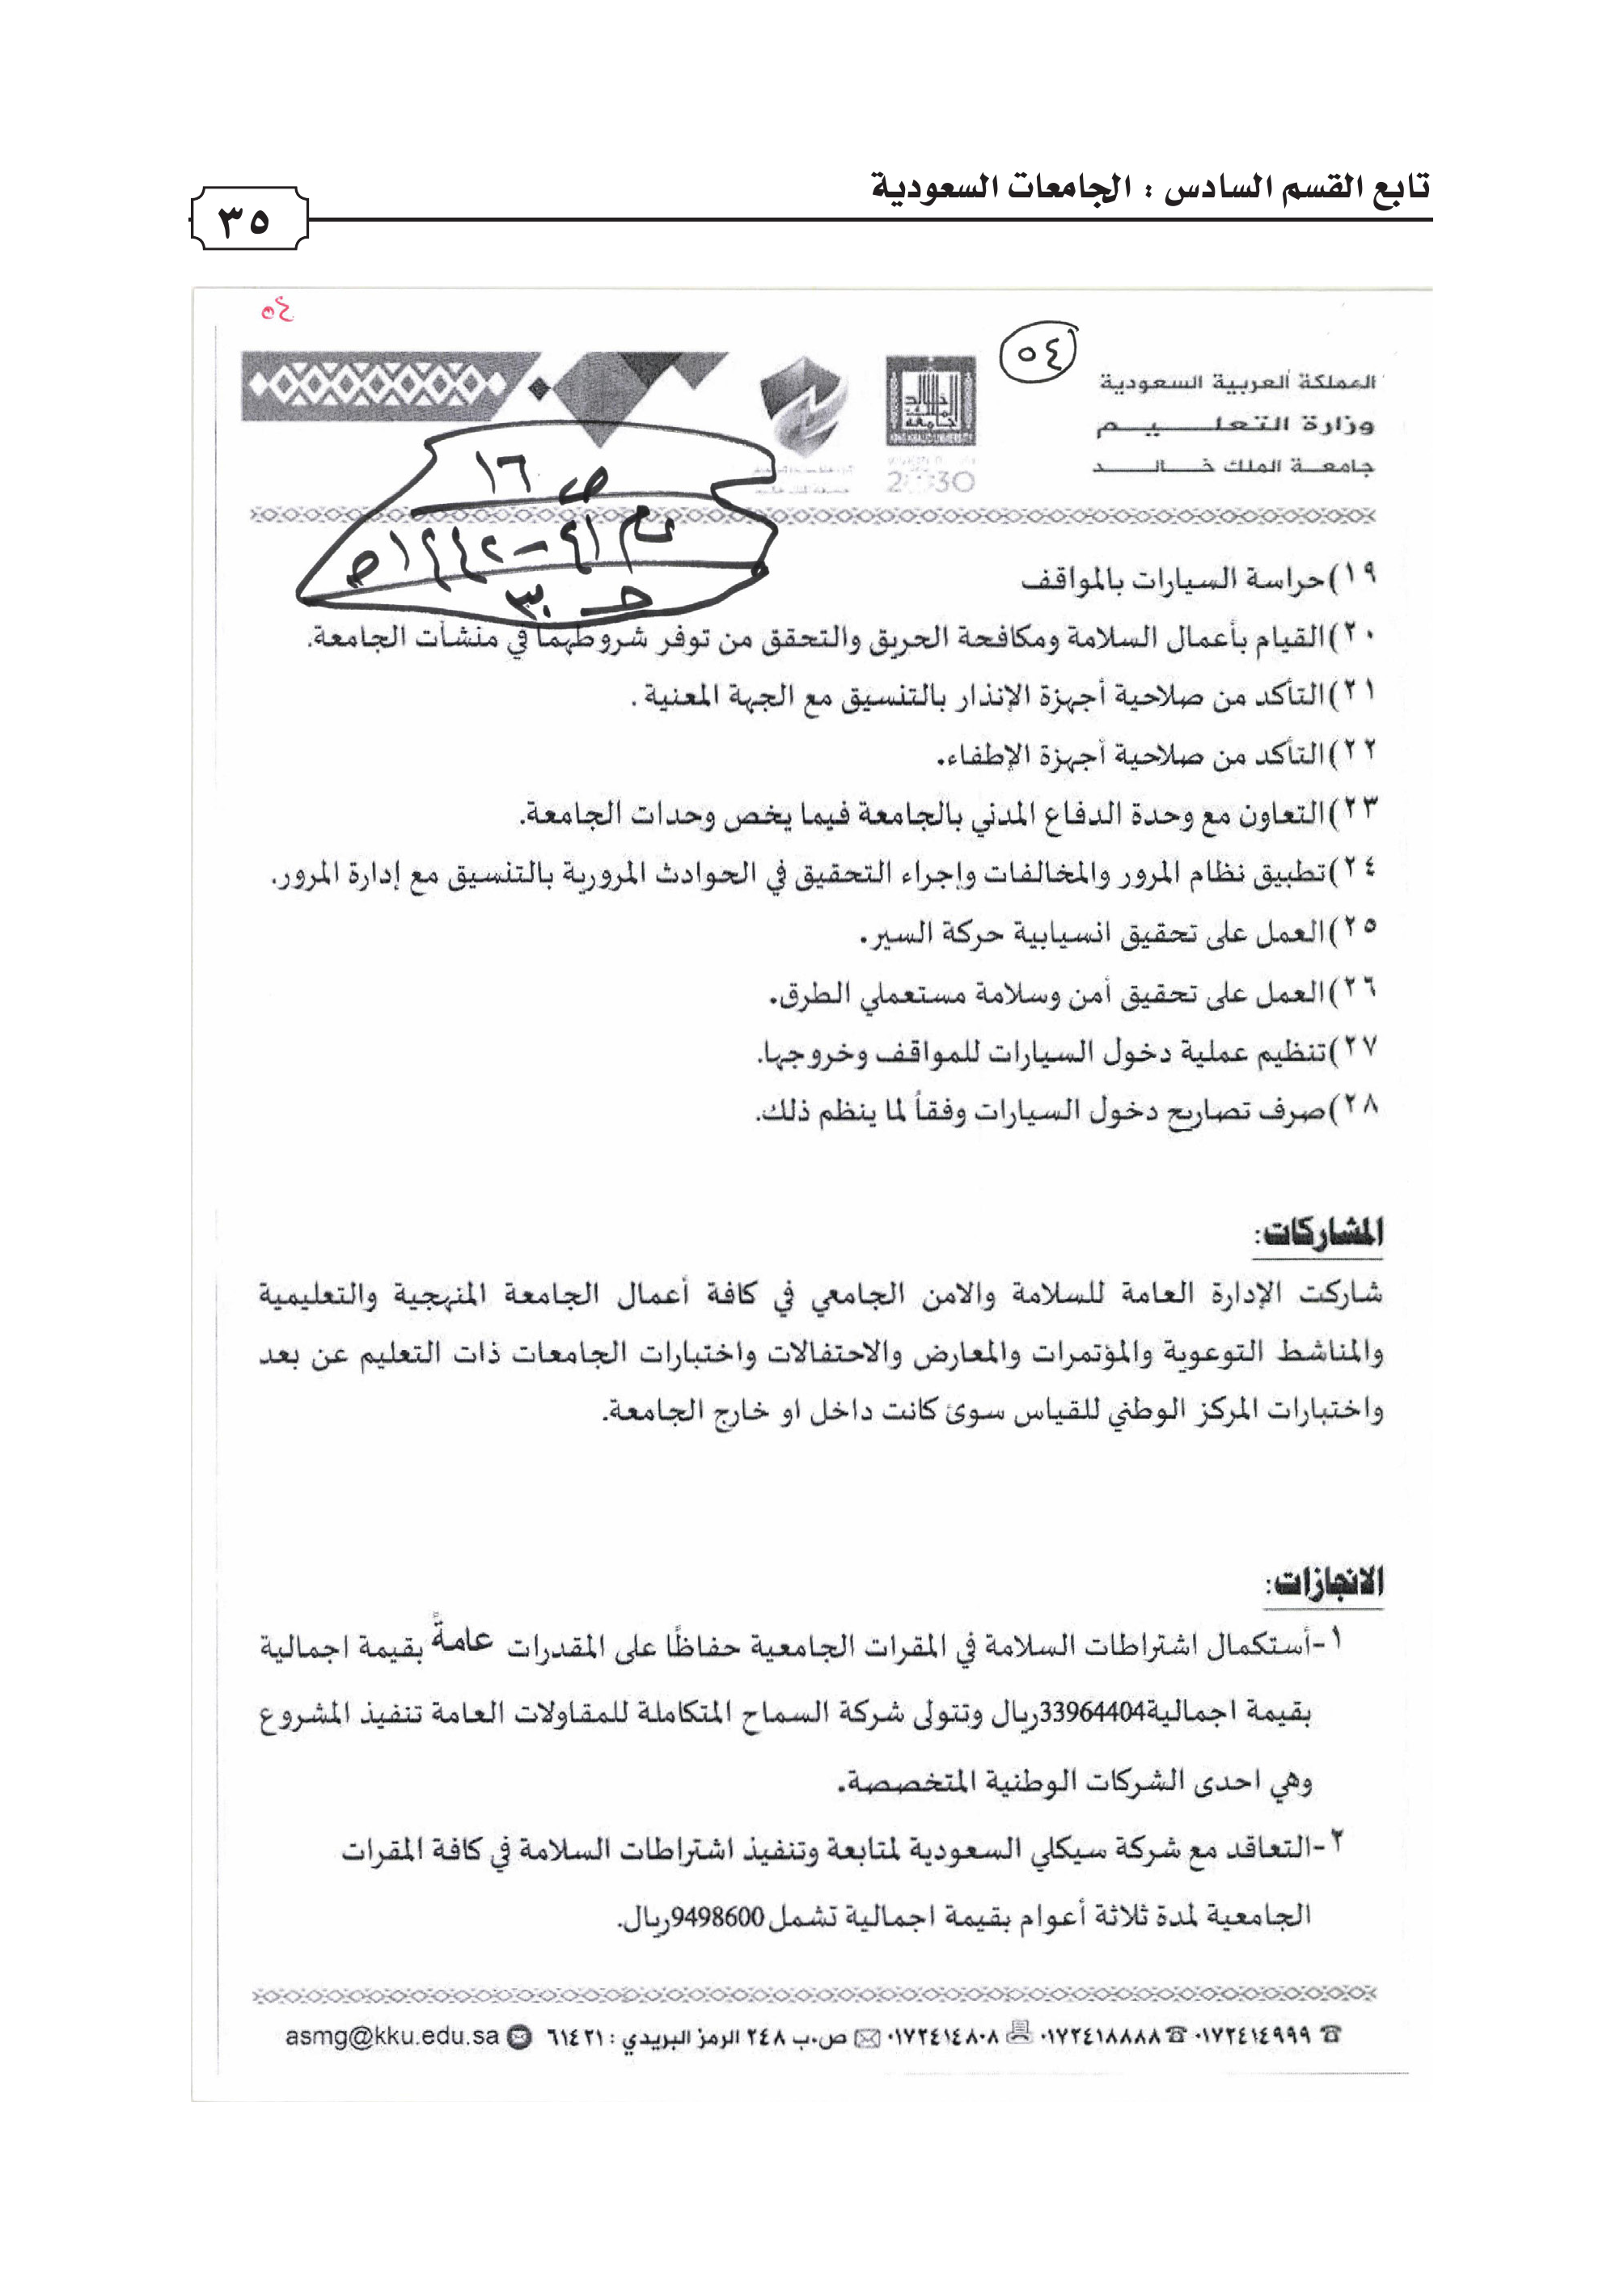 تابع القسم السادس : الجامعات السعودية
٣٥
٥٤
٥٤
المملكة العربية السعودية
وزارة التعليم
جامعة الملك خالد
KING KHALID UNIVERSITY
2030
ص ١٦
عام ٤١-١٤٤٢هـ
١٩)حراسة السيارات بالمواقف
٢٠)القيام بأعمال السلامة ومكافحة الحريق والتحقق من توفر شروطهما في منشأت الجامعة.
٢١)التأكد من صلاحية أجهزة الإنذار بالتنسيق مع الجهة المعنية .
٢٢)التأكد من صلاحية أجهزة الإطفاء.
٢٣)التعاون مع وحدة الدفاع المدني بالجامعة فيما يخص وحدات الجامعة.
٢٤)تطبيق نظام المرور والمخالفات وإجراء التحقيق في الحوادث المرورية بالتنسيق مع إدارة المرور.
٢٥)العمل على تحقيق انسيابية حركة السير.
٢٦)العمل على تحقيق أمن وسلامة مستعملي الطرق.
٢٧)تنظيم عملية دخول السيارات للمواقف وخروجها.
٢٨)صرف تصاريح دخول السيارات وفقاً لما ينظم ذلك.
المشاركات:
شاركت الإدارة العامة للسلامة والامن الجامعي في كافة أعمال الجامعة المنهجية والتعليمية
والمناشط التوعوية والمؤتمرات والمعارض والاحتفالات واختبارات الجامعات ذات التعليم عن بعد
واختبارات المركز الوطني للقياس سوئ كانت داخل او خارج الجامعة.
الانجازات:
١-أستكمال اشتراطات السلامة في المقرات الجامعية حفاظًا على المقدرات عامةً بقيمة اجمالية
بقيمة اجمالية33964404ريال وتتولى شركة السماح المتكاملة للمقاولات العامة تنفيذ المشروع
وهي احدى الشركات الوطنية المتخصصة.
٢-التعاقد مع شركة سيكلي السعودية لمتابعة وتنفيذ اشتراطات السلامة في كافة المقرات
الجامعية لمدة ثلاثة أعوام بقيمة اجمالية تشمل9498600ريال.
٠١٧٢٤١٤٩٩٩ ٠١٧٢٤١٨٨٨٨ ٠١٧٢٤١٤٨٠٨ ص.ب ٢٤٨ الرمز البريدي : ٦١٤٢١ asmg@kku.edu.sa